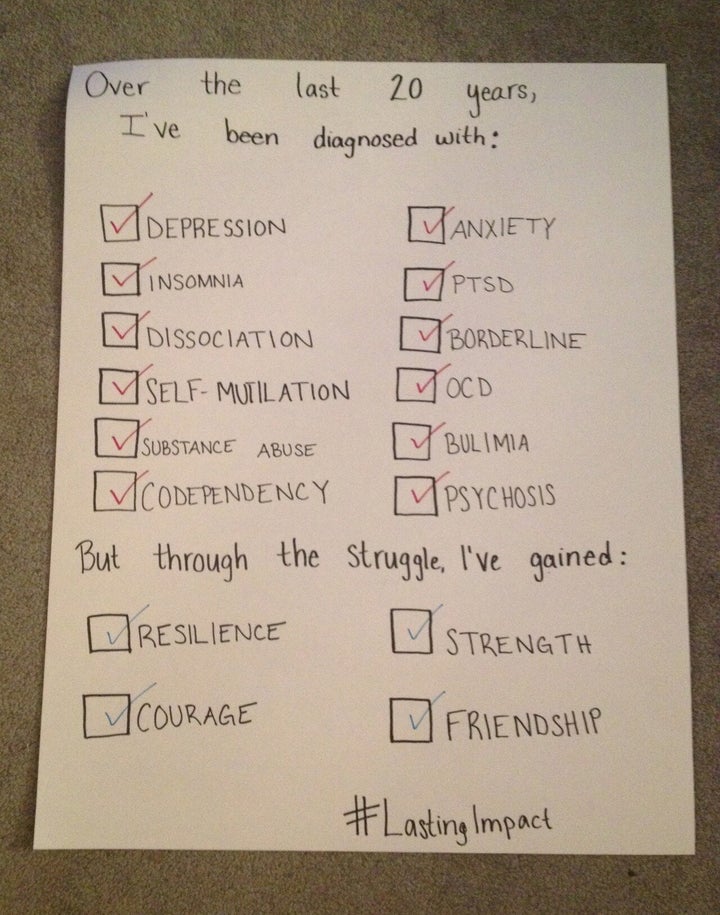 Over the last 20 years,
I've been diagnosed with:
DEPRESSION ANXIETY
INSOMNIA PTSD
DISSOCIATION BORDERLINE
SELF-MUTILATION OCD
SUBSTANCE ABUSE BULIMIA
CODEPENDENCY PSYCHOSIS
But through the struggle, I've gained:
RESILIENCE STRENGTH
COURAGE FRIENDSHIP
#LastingImpact